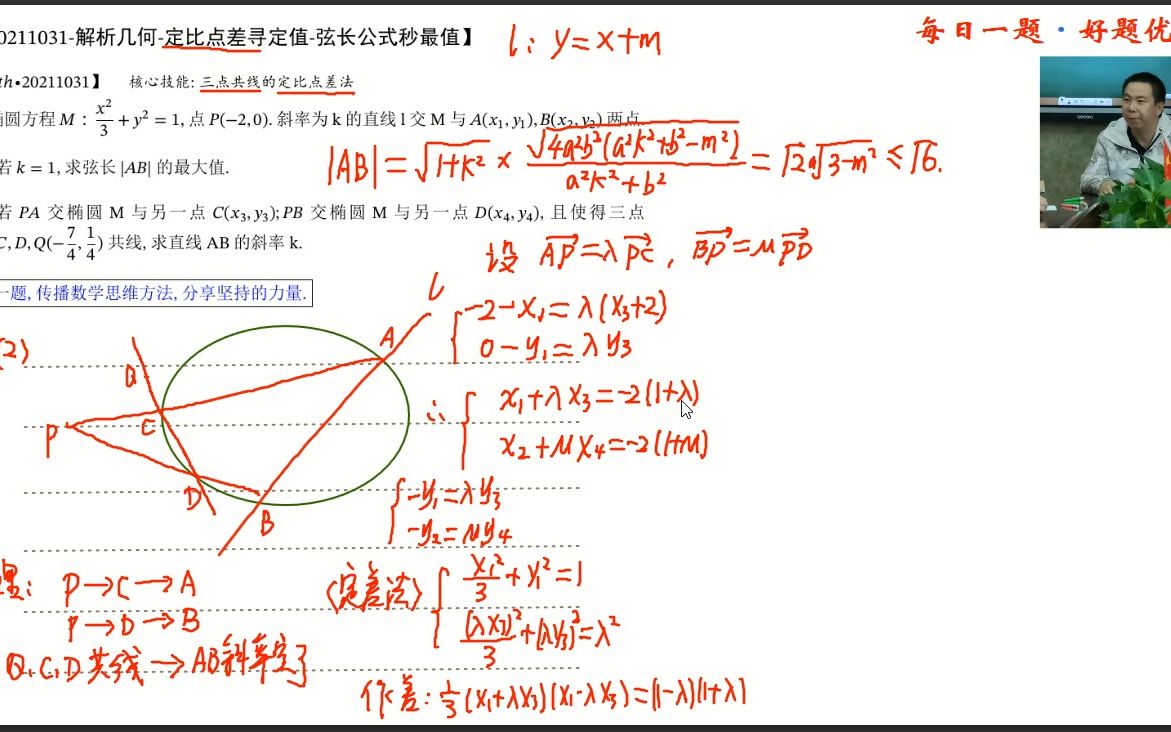 0211031-解析几何-定比点差寻定值-弦长公式秒最值】
l: y=x+m
每日一题·好题优
th•20211031】 核心技能: 三点共线的定比点差法
圆方程 M: x²/3 + y² = 1, 点 P(−2,0). 斜率为 k 的直线 l 交 M 与 A(x₁,y₁), B(x₂,y₂) 两点.
若 k = 1, 求弦长 |AB| 的最大值.
|AB| = √(1+k²) × √(4a²b²(a²k²+b²−m²))/(a²k²+b²) = √2 √(3−m²) ≤ √6.
若 PA 交椭圆 M 与另一点 C(x₃,y₃); PB 交椭圆 M 与另一点 D(x₄,y₄), 且使得三点
C, D, Q(−7/4, 1/4) 共线, 求直线 AB 的斜率 k.
设 AP=λPC, BP=μPD
一题, 传播数学思维方法, 分享坚持的力量.
l
{ −2−x₁=λ(x₃+2)
0−y₁=λy₃
2)
A
Q
P
C
D
B
∴ { x₁+λx₃=−2(1+λ)
x₂+μx₄=−2(1+μ)
{ −y₁=λy₃
−y₂=μy₄
P→C→A
P→D→B
Q、C、D共线→AB斜率定了
〈定差法〉 { x₁²/3+y₁²=1
(λx₃)²/3+(λy₃)²=λ²
作差: 1/3(x₁+λx₃)(x₁−λx₃)=(1−λ)(1+λ)